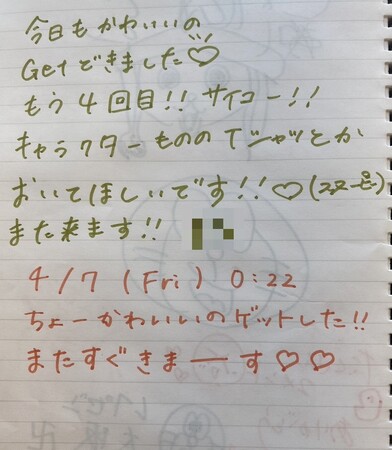 今日もかわいいの
Getできました♡
もう4回目!! サイコー!!
キャラクターもののTシャツとか
おいてほしいです!!♡(スヌーピー)
また来ます!!
4/7 (Fri) 0:22
ちょーかわいいのゲットした!!
またすぐきまーーす♡♡